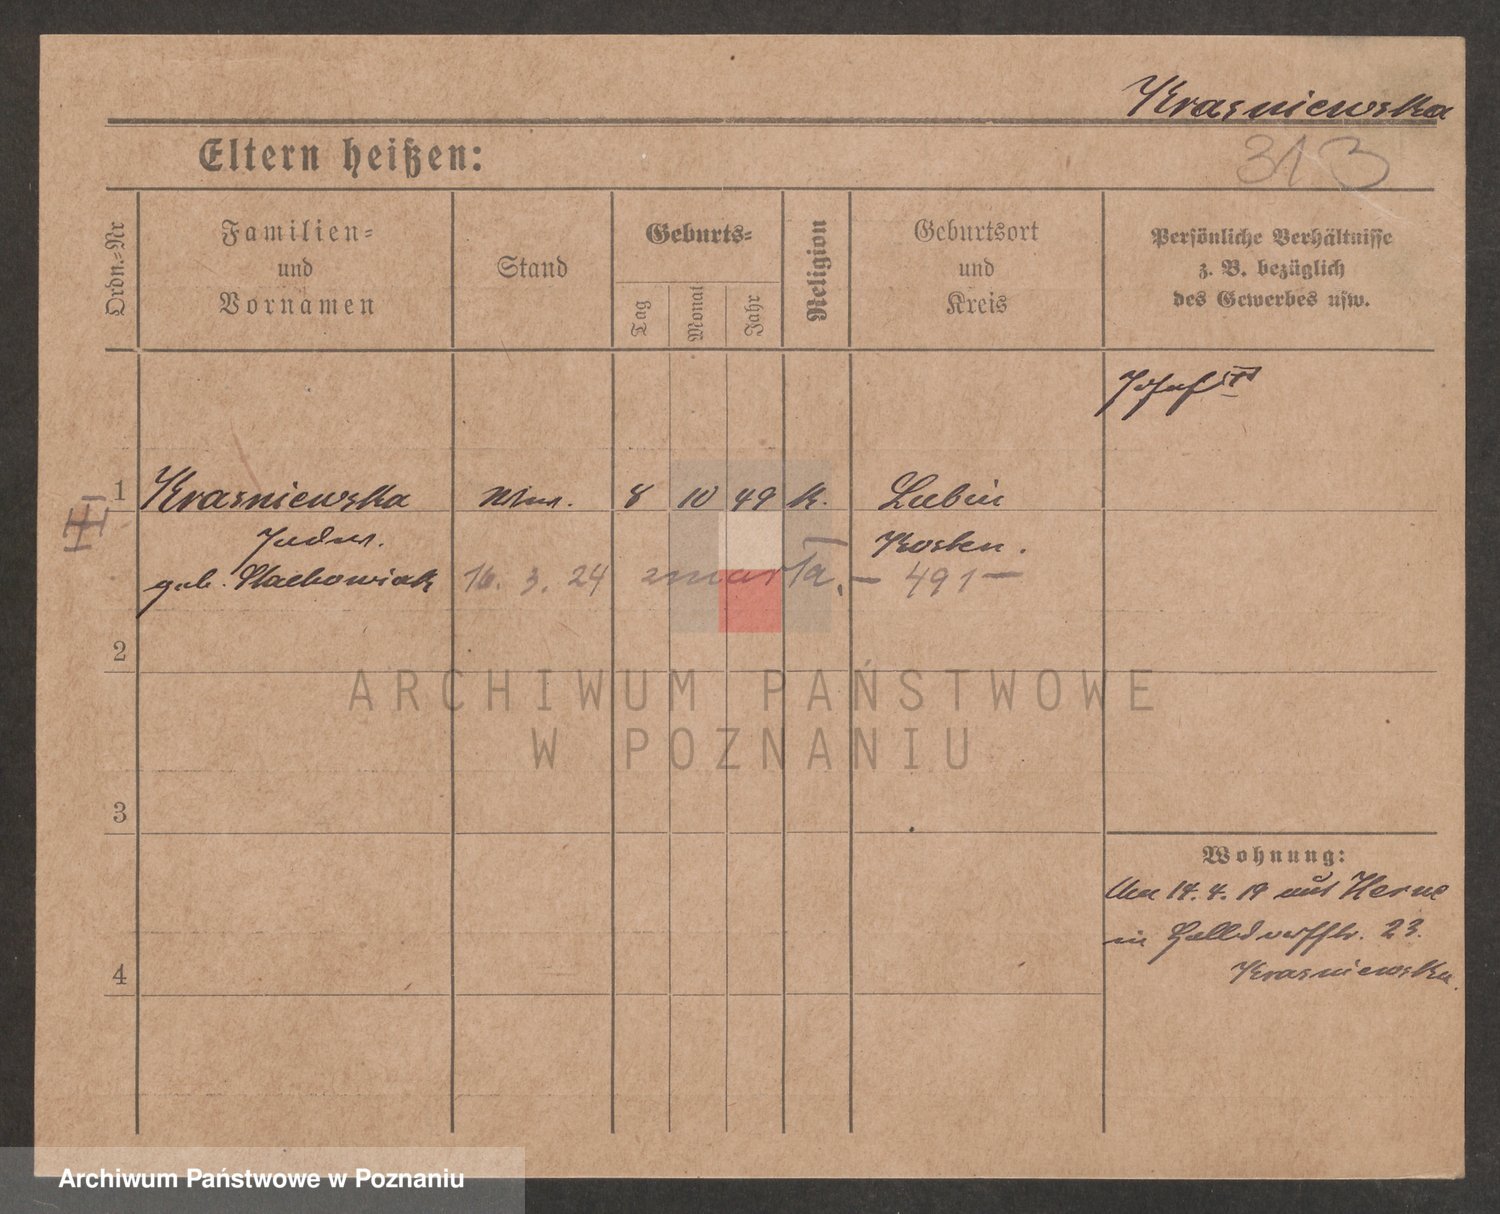 Krasniewska
313
Eltern heißen:
Ordn.-Nr
Familien-
und
Vornamen
Stand
Geburts-
Tag
Monat
Jahr
Religion
Geburtsort
und
Kreis
Persönliche Verhältnisse
z. B. bezüglich
des Gewerbes usw.
Josef
1 Krasniewska Wwe. 8 10 49 k. Lubin
Kosten.
geb. Stachowiak 16. 3. 24 zmarła. – 491 –
2
ARCHIWUM PAŃSTWOWE
W POZNANIU
3
4
Wohnung:
14. 4. 19 aus Herne
in 23.
Krasniewska.
Archiwum Państwowe w Poznaniu